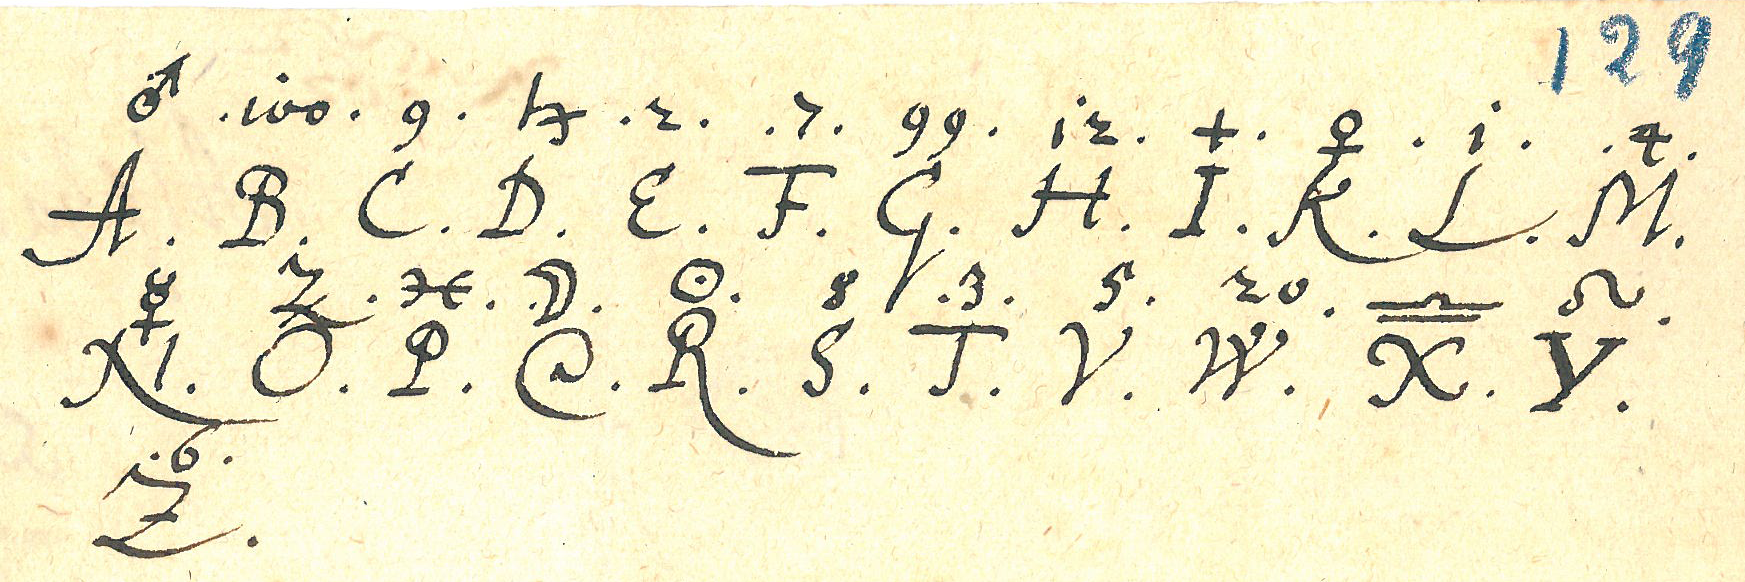 129
♂ . 100 . 9 . ♄ . 2 . . 7 . 99 . 12 . + . ♀ . 1 . . 4 .
A . B . C . D . E . F . G . H . I . K . L . M .
☿ ♃ . ♓ . ☽ . ☉ . 8 . 3 . 5 . 20 . ♎ ♌ .
N . O . P . Q . R . S . T . V . W . X . Y .
. 6 .
Z .